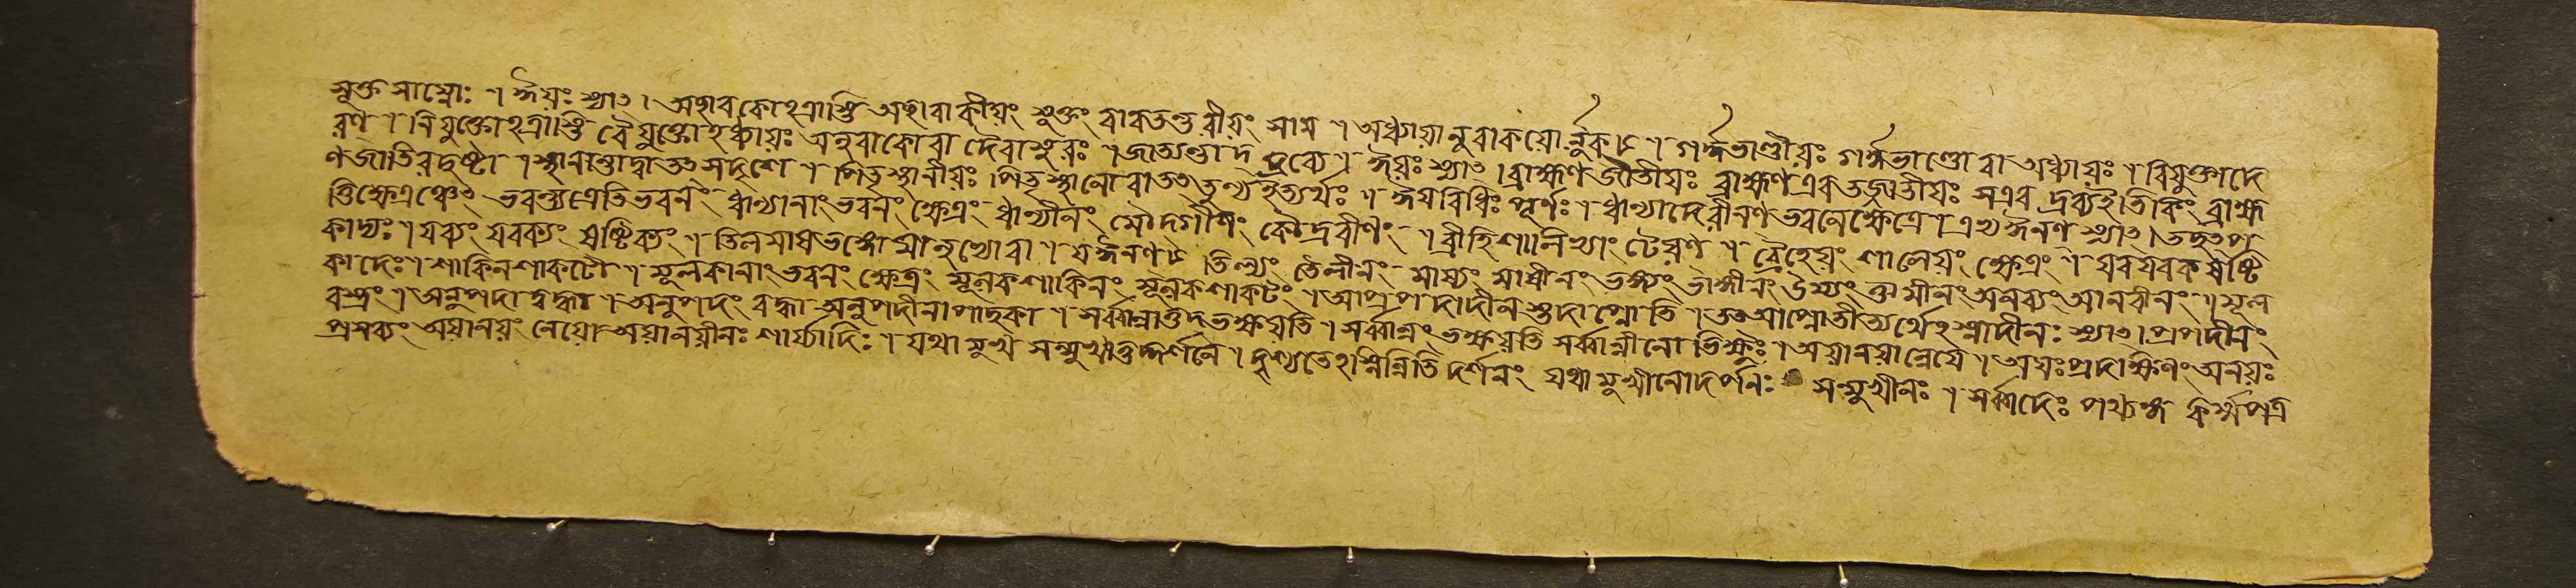 সূক্ত সাম্নোঃ । ঈয়ঃ স্যাৎ । অছাবকোঽত্রাস্তি অছাবাকীয়ং সুক্তং বাকতন্তবীয়ং সাম । অধ্যায়ানুবাকয়োর্ল্লুক্চ । গর্দ্দভাণ্ডীয়ঃ গর্দ্দভাণ্ডো বা অধ্যায়ঃ । বিযুক্তাদে
রণ্ । বিযুক্তোঽত্রাস্তি বৈযুক্তোঽধ্যায়ঃ অনুবাকো বা দৈবাসুরঃ । জাত্যন্তাদ্দ্রব্যে । ঈয়ঃ স্যাৎ । ব্রাহ্মণজাতীয়ঃ ব্রাহ্মণএব তজ্জাতীয়ঃ সএব দ্রব্যইতি কিং ব্রাহ্ম
ণজাতিরদুষ্টা । স্থানান্তাদ্বা তৎসদৃশে । পিতৃস্থানীয়ঃ পিতৃস্থানো বা তত্তুল্য ইত্যর্থঃ । ঈয়বিধিঃ পূর্ণঃ । ধান্যাদেরীনণ্ ভবনেক্ষেত্রে । এষ্঵ ঈনণ্ স্যাৎ । তদ্ভৎপ
ত্তিক্ষেত্রঞ্চেৎ ভবন্ত্যত্রেতি ভবনং ধান্যানাং ভবনং ক্ষেত্রং ধান্যীনং মৌদগীনং কৌদ্রবীণং । ব্রীহিশালিভ্যাং ঢেয়ণ্ । ব্রৈহেয়ং শালেয়ং ক্ষেত্রং । যবযবকষষ্টি
কাদ্যঃ । যব্যং যবক্যং ষষ্টিক্যং । তিলমাষভঙ্গোমানুভ্যো বা । য ঈনণ্চ তিল্যং তৈলীনং মাষ্যং মাষীণং ভঙ্গ্যং ভাঙ্গীনং উম্যং ঔমীনং অনব্যং আনবীনং । মূল
কাদেঃ শাকিনশাকটৌ । মূলকানাং ভবনং ক্ষেত্রং মূলকশাকিনং মূলকশাকটং । আপ্রপদাদীনস্তদাপ্নোতি । তৎআপ্নোতীত্যর্থেঽস্মাদীনঃ স্যাৎ । প্রপদীনং
বস্ত্রং । অনুপদাদ্বদ্ধা । অনুপদং বদ্ধা অনুপদীনা পাদুকা । সর্ব্বান্নাত্তদ্ভক্ষয়তি । সর্ব্বান্নং ভক্ষয়তি সর্ব্বান্নীনো ভিক্ষুঃ । অয়ানয়ান্নেয়ে । অয়ঃপ্রদক্ষিণং অনয়ঃ
প্রসব্যং অয়ানয়ং নেয়ো অয়ানয়ীনঃ শার্য্যাদিঃ । যথামুখ সন্মুখাত্তদ্দর্শনে । দৃশ্যতেঽস্মিন্নিতি দর্শনং যথামুখীনোদর্পনঃ সন্মুখীনঃ । সর্ব্বাদেঃ পথ্যঙ্গ কর্ম্মপত্র